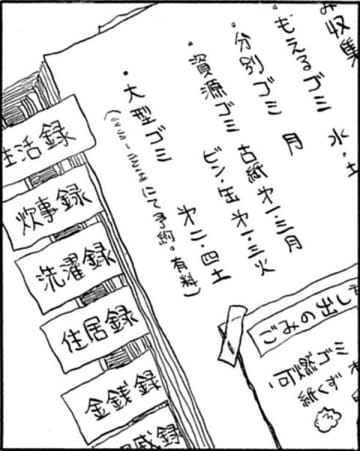 み収集
・もえるゴミ 水・土
・分別ゴミ 月
・資源ゴミ 古紙 第一・三月
ビン・缶 第一・三火
・大型ゴミ 第二・四土
にて予約。有料)
ごみの出し
可燃ゴミ
紙くず
生活録
炊事録
洗濯録
住居録
金銭録